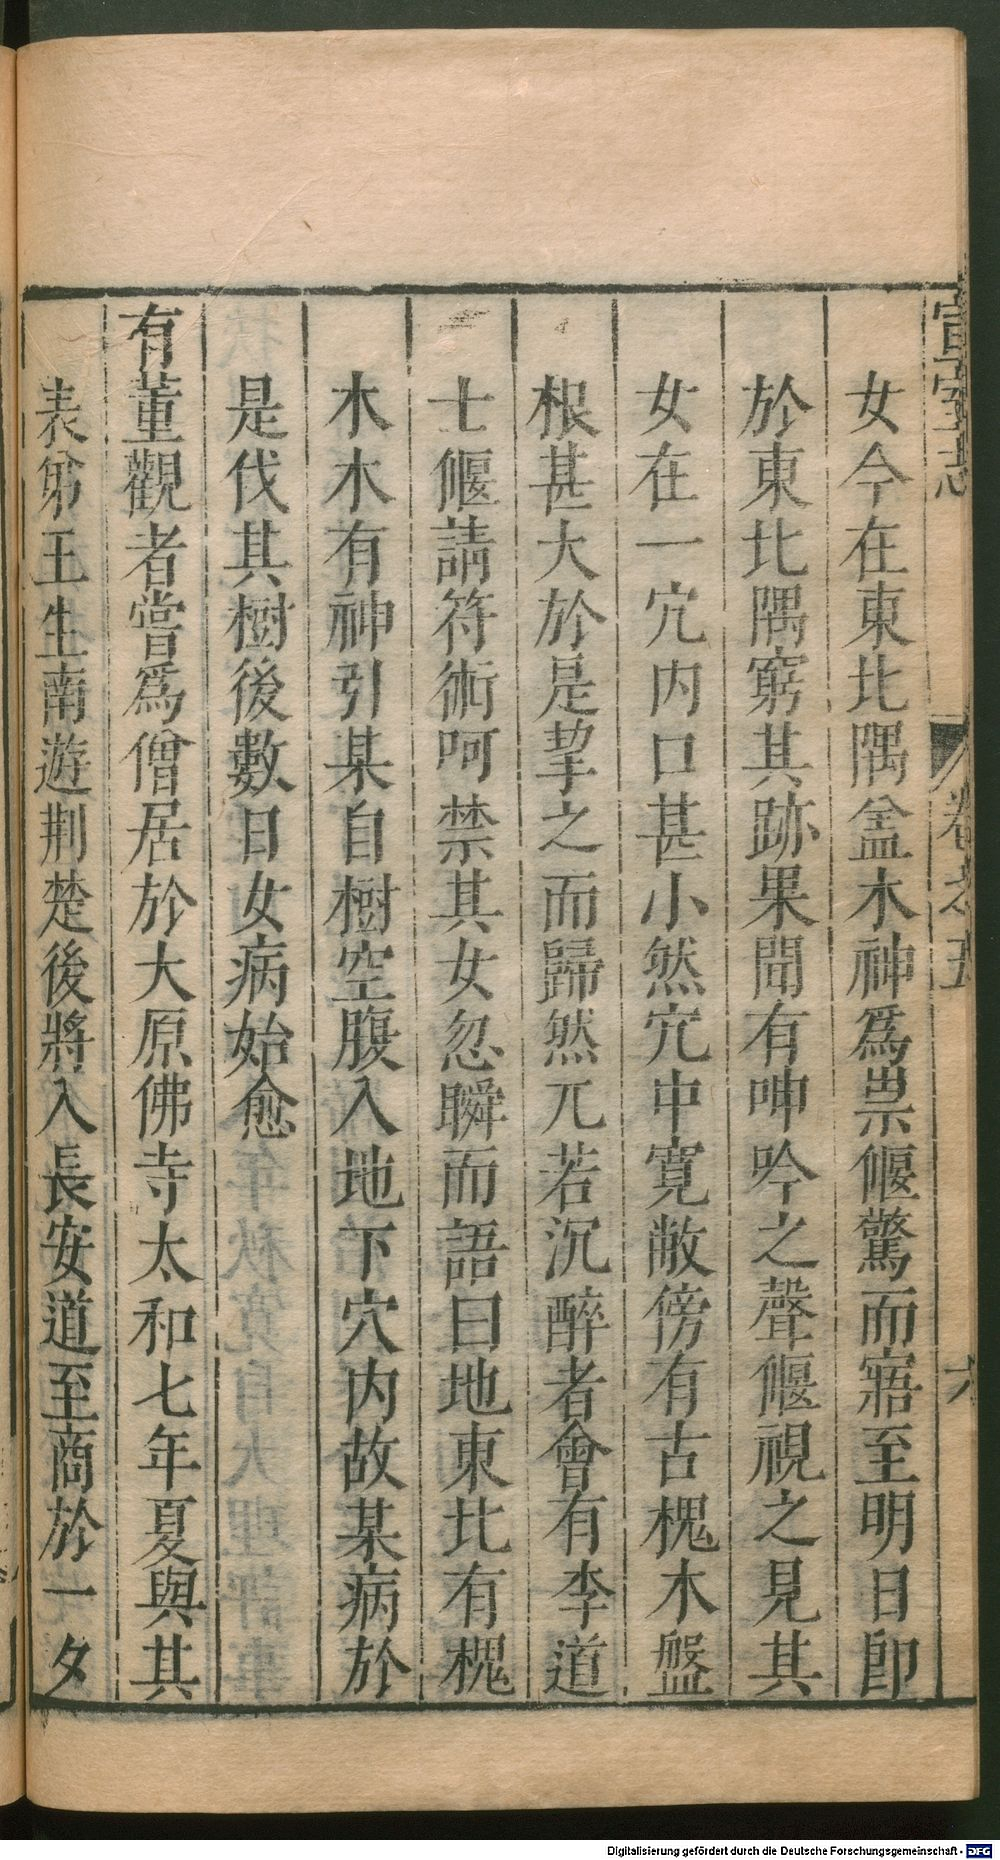 宣室志 卷之五 六
女今在東北隅盆木神爲祟偃驚而寤至明日即
於東北隅窮其跡果聞有呻吟之聲偃視之見其
女在一穴内口甚小然穴中寬敞傍有古槐木盤
根甚大於是挈之而歸然兀若沉醉者會有李道
士偃請符術呵禁其女忽瞬而語曰地東北有槐
木木有神引某自樹空腹入地下穴内故某病於
是伐其樹後數日女病始愈
有董觀者嘗爲僧居於大原佛寺太和七年夏與其
表弟王生南遊荆楚後將入長安道至商於一夕
Digitalisierung gefördert durch die Deutsche Forschungsgemeinschaft - DFG